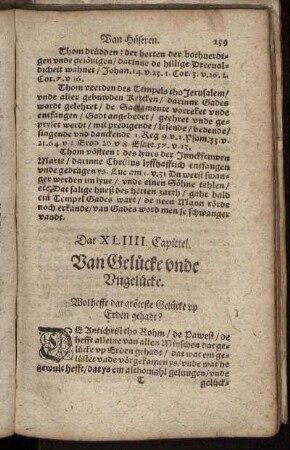 Van Hüseren. 259
Thom drüdden: der herten der bothuerdi-
gen vnde gelövigen / darinne de hillige Drevol-
dicheit wahnet / Johan. 14. v. 23. 1. Cor. 3. v. 16. 2.
Cor. 6. v. 16
Thom veerden des Tempels tho Jerusalem /
vnde aller gebuwden Kercken / darinne Gades
wordt gelehret / de Sacramente vorreket vnde
entfangen / Godt angebedet / geehret vnde ge-
pryset werdt / mit predigende / lesende / bedende /
singende vnd danckende 1. Reg 9 v. 1. Psam. 33 v.
21. 64. v 2 Exod 20 v 8 Esaie. 57. v. 13.
Thom vöfften: des huses der Junckfruwen
Marie / darinne Christus lyffhafftich entfangen
vnde gedragen ys. Luc am 1. v. 31 Du werst swan-
ger werden im lyue / vnde einen Söhne tehlen /
etc. Dat salige hues des herten zarth / gahr bald
ein Tempel Gades wart / de neen Mann rörde
noch erkande / van Gades word men je schwanger
vandt.
Dat XLIIII. Capittel.
Van Gelücke vnde
Vngelücke.
Wol hefft dat gröteste Gelücke vp
Erden gehadt?
DE Antichrist tho Rohm / de Pawest / de
hefft alleine van allen Minschen dat ge-
lücke vp Erden gehadt / dat wat em ge-
lüstet vnde vörgekamen ys / vnde wat he
gewult hefft / dat ys em althomahl gelungen / vnde
T gelück-